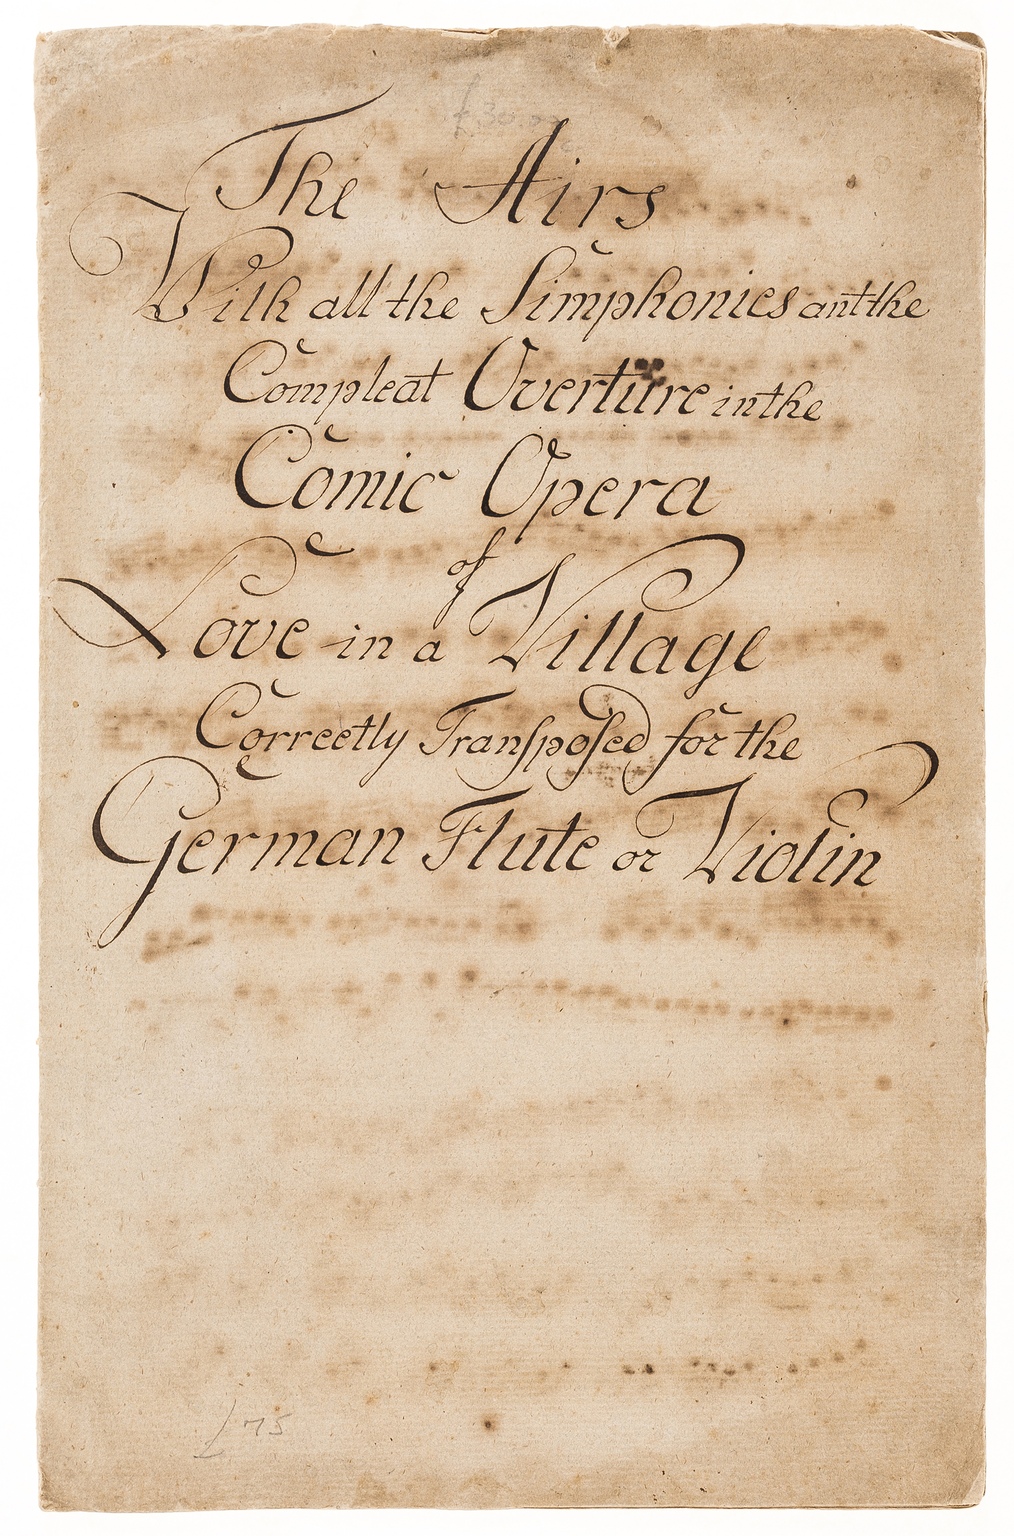 £30.00
The Airs
With all the Simphonies ant the
Compleat Overture in the
Comic Opera
of
Love in a Village
Correctly Transposed for the
German Flute or Violin
£75